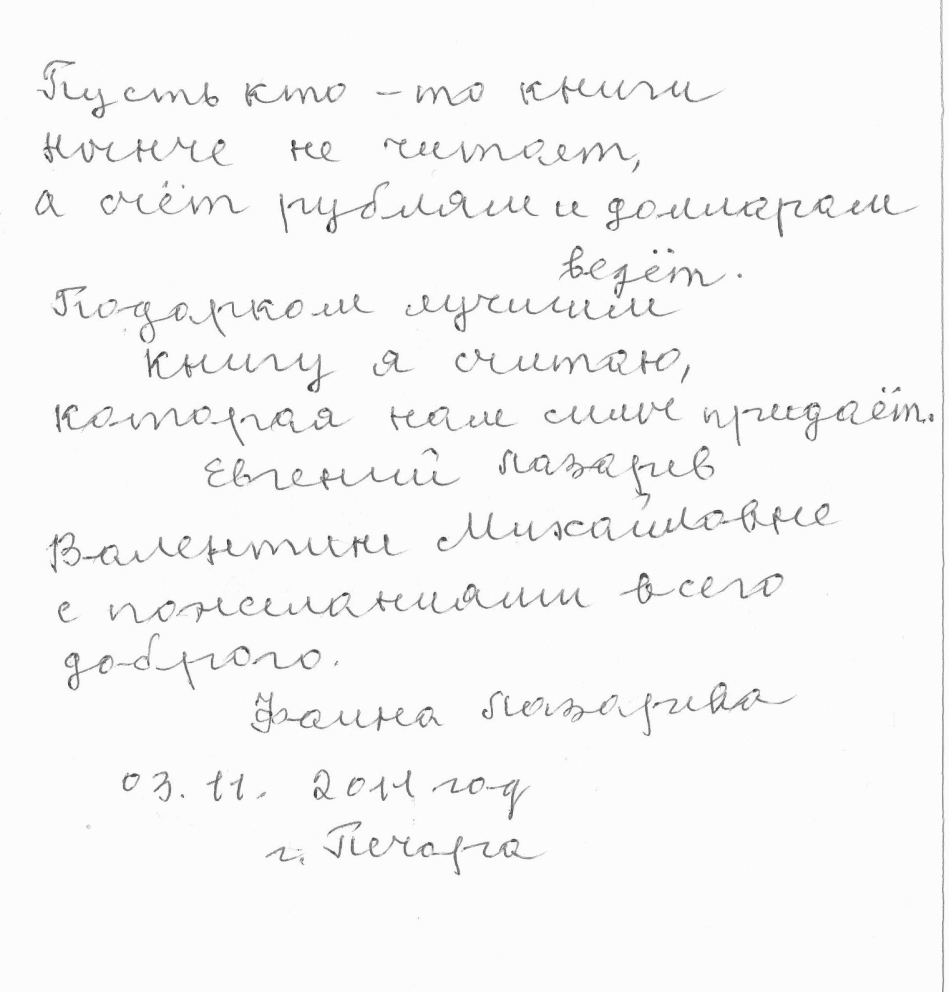 Пусть кто-то книги
нынче не читает,
а счёт рублям и долларам
ведёт.
Подарком лучшим
книгу я считаю,
которая нам силы придаёт.
Евгений Лазарев
Валентине Михайловне
с пожеланиями всего
доброго.
Фаина Лазарева
03.11. 2011 год
г. Печора